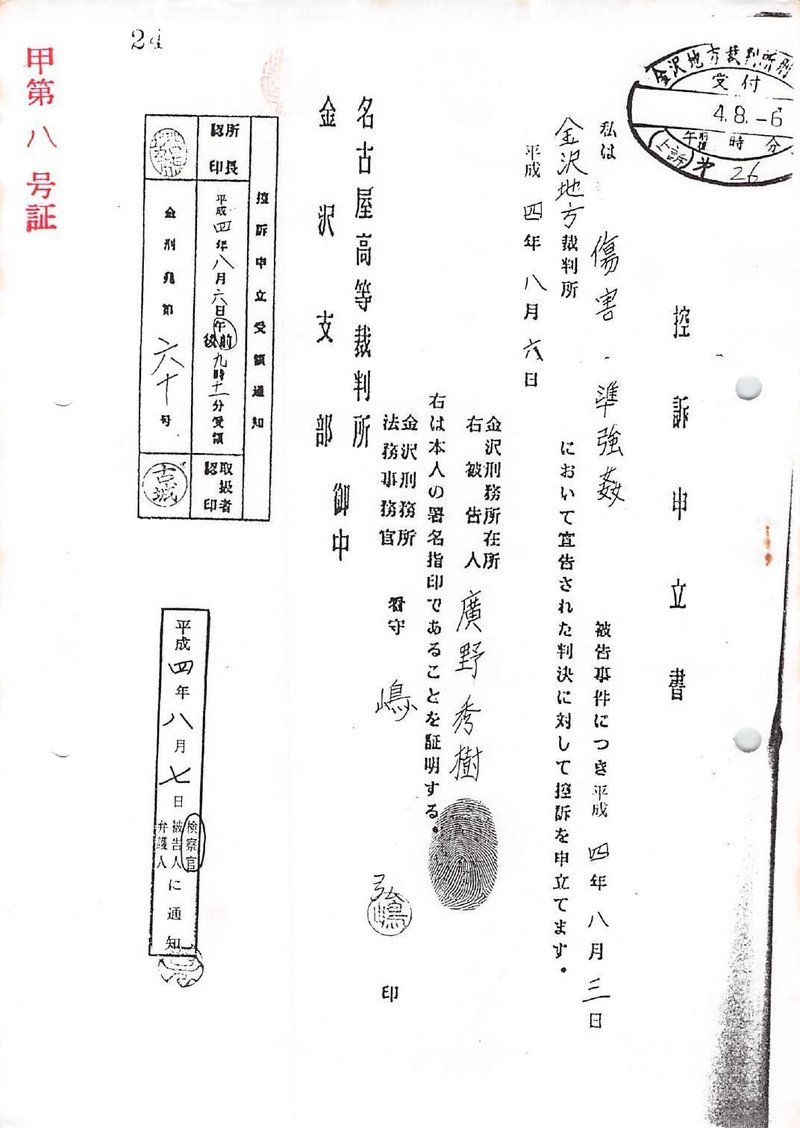 24
甲第八号証
金沢地方裁判所刑
受付
4.8.-6
午前後 時 分
(上訴)第26
控訴申立書
私は 傷害・準強姦 被告事件につき平成四年八月三日
金沢地方裁判所 において宣告された判決に対して控訴を申立てます。
平成四年八月六日
金沢刑務所在所
右被告人 廣野秀樹
右は本人の署名指印であることを証明する。
金沢刑務所
法務事務官 看守 嶋 弘 印
名古屋高等裁判所
金沢支部 御中
控訴申立受領通知
所長認印
平成四年八月六日午前後九時十一分受領
取扱者認印
金刑発第六十号
平成四年八月七日
検察官
被告人
弁護人
に通知